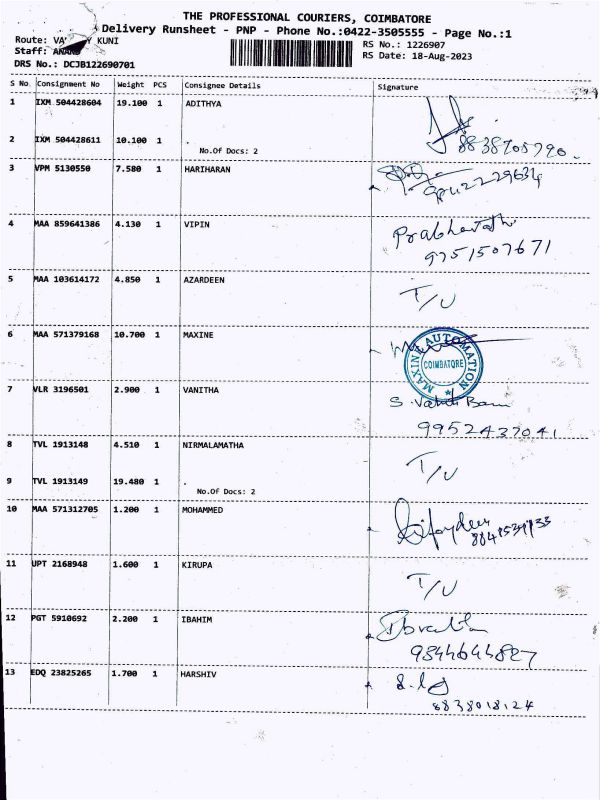 THE PROFESSIONAL COURIERS, COIMBATORE
Delivery Runsheet - PNP - Phone No.:0422-3505555 - Page No.:1
Route: VA Y KUNI
RS No.: 1226907
Staff: ANAND
RS Date: 18-Aug-2023
DRS No.: DCJB122690701
S No. Consignment No Weight PCS Consignee Details Signature
1 IXM 504428604 19.100 1 ADITHYA
2 IXM 504428611 10.100 1 .
No.Of Docs: 2
8838705790.
3 VPM 5130550 7.580 1 HARIHARAN
9842229634
4 MAA 859641386 4.130 1 VIPIN
Prabhavathi
9751507671
5 MAA 103614172 4.850 1 AZARDEEN
T/U
6 MAA 571379168 10.700 1 MAXINE
MAXINE AUTOMATION
COIMBATORE
7 VLR 3196501 2.900 1 VANITHA
S.
9952437041
8 TVL 1913148 4.510 1 NIRMALAMATHA
T/U
9 TVL 1913149 19.480 1 .
No.Of Docs: 2
10 MAA 571312705 1.200 1 MOHAMMED
11 UPT 2168948 1.600 1 KIRUPA
T/U
12 PGT 5910692 2.200 1 IBAHIM
9344644827
13 EDQ 23825265 1.700 1 HARSHIV
8838018124